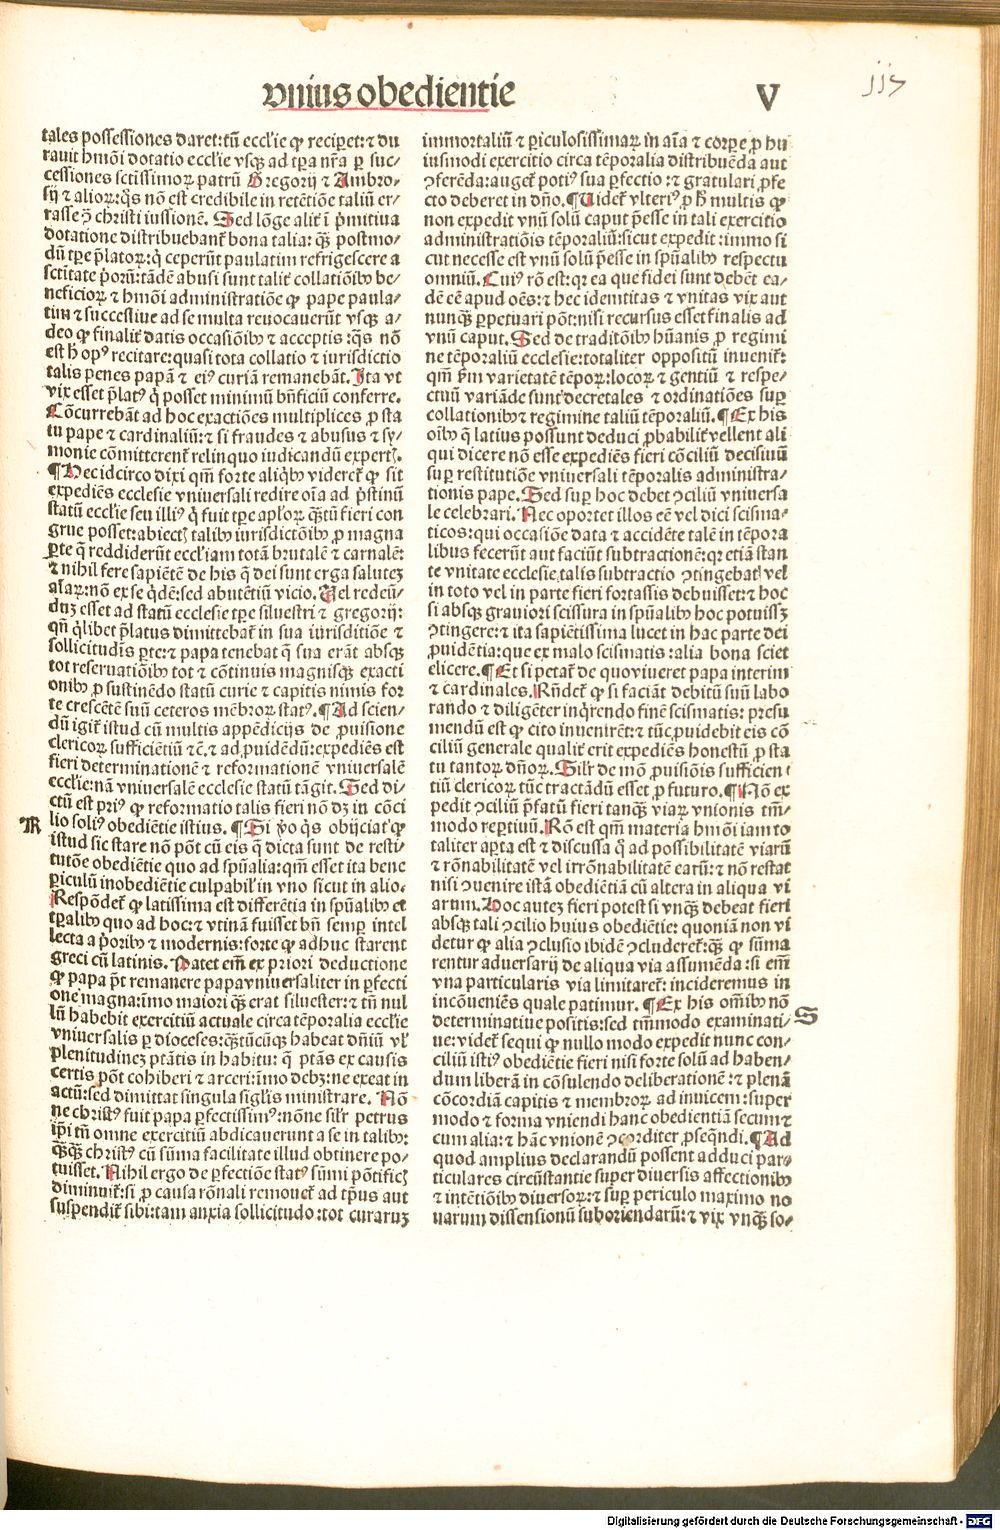 vnius obedientie
V
tales possessiones daret: tn̄ eccl'ie qͥ reciꝑet: ⁊ du
rauit hmōi dotatio eccl'ie vsqꝫ ad tꝑa nr̄a ꝑ suc⸗
cessiones sctissimoꝝ patrū Gregorij ⁊ Ambro⸗
sij ⁊ alioꝝ: q̄s nō est credibile in retētiōe taliū er⸗
rasse ꝯ̄ christi iussionē. Sed lōge alit̓ ī p̄mitiua
dotatione distribuebant̓ bona talia: qꝫ̄ postmo⸗
dū tꝑe p̄latoꝝ: q̇ ceperūt paulatim refrigescere a
sctitate p̄orū: tādē abusi sunt talit̓ collatiōibꝰ be⸗
neficioꝝ ⁊ hmōi administratiōe ꝙ pape paula⸗
tim ⁊ successiue ad se multa reuocauerūt vsqꝫ a⸗
deo ꝙ finalit̓ datis occasiōibꝰ ⁊ acceptis: q̄s nō
est h̄ opꝰ recitare: quasi tota collatio ⁊ iurisdictio
talis penes papā ⁊ eiꝰ curiā remanebāt. Ita vt
vix esset p̄latꝰ q̇ posset minimū bn̄ficiū conferre.
Cōcurrebāt ad hoc exactiōes multiplices ꝓ sta
tu pape ⁊ cardinaliū: ⁊ si fraudes ⁊ abusus ⁊ sy⸗
monie cōmitterent̓ relinquo iudicandū expert̓.
¶ Hec idcirco dixi qm̄ forte aliqͥbꝰ videret̓ ꝙ sit
expediēs ecclesie vniuersali redire oīa ad p̄stinū
statū eccl'ie seu illiꝰ q̇ fuit tꝑe apl'oꝝ qꝫ̄tū fieri con
grue posset: abiectꝭ talibꝰ iurisdictōibꝰ ꝓ magna
ꝑte q̄ reddiderūt eccl'iam totā brutalē ⁊ carnalē:
⁊ nihil fere sapiētē de his q̄ dei sunt erga salutez
aīaꝝ: nō ex se q̇dē: sed abutētiū vicio. Uel redeū⸗
duꝫ esset ad statū ecclesie tꝑe siluestri ⁊ gregorij:
qn̄ q̇libet p̄latus dimittebat̓ in sua iurisditiōe ⁊
sollicitudīs ꝑte: ⁊ papa tenebat q̄ sua erāt absqꝫ
tot reseruatiōibꝰ tot ⁊ cōtinuis magnisqꝫ exacti
onibꝰ ꝓ sustinēdo statū curie ⁊ capitis nimis for
te crescētē suū ceteros mēbroꝝ statꝰ. ¶ Ad scien⸗
dū igit̓ istud cū multis appēdicijs de ꝓuisione
clericoꝝ sufficiētiū ⁊c̄. ⁊ ad ꝓuidēdū: expediēs est
fieri determinationē ⁊ reformationē vniuersalē
eccl'ie: nā vniuersalē ecclesie statū tāgit. Sed di⸗
ctū est priꝰ ꝙ reformatio talis fieri nō dꝫ in cōci
R
lio soliꝰ obediētie istius. ¶ Si v̓o q̇s obijciat ꝙ
istud sic stare nō pōt cū eis q̄ dicta sunt de resti⸗
tutōe obediētie quo ad spūalia: qm̄ esset ita bene
ꝑiculū inobediētie culpabil' in vno sicut in alio.
Respōdet̓ ꝙ latissima est differētia in spūalibꝰ et
tꝑalibꝰ quo ad hoc: ⁊ vtinā fuisset bn̄ semꝑ intel
lecta a p̄oribꝰ ⁊ modernis: forte ꝙ adhuc starent
greci cū latinis. Patet em̄ ex priori deductione
ꝙ papa pōt remanere papa vniuersaliter in ꝑfecti
one magna: īmo maiori qꝫ̄ erat siluester: ⁊ tn̄ nul
lū habebit exercitiū actuale circa tēporalia eccl'ie
vniuersalis ꝑ dioceses: qꝫ̄tūcūqꝫ habeat dn̄iū vl'
plenitudinez ptātis in habitu: q̄ ptās ex causis
certis pōt cohiberi ⁊ arceri: īmo debꝫ: ne exeat in
actū: sed dimittat singula sigl'is ministrare. Nō
ne christꝰ fuit papa ꝑfectissimꝰ: nōne sil'r petrus
ip̄i tn̄ omne exercitiū abdicauerunt a se in talibꝰ:
qꝫ̄qꝫ christꝰ cū sūma facilitate illud obtinere po⸗
tuisset. Nihil ergo de ꝑfectiōe statꝰ sūmi pōtificꝭ
diminuit̓: si ꝓ causa rōnali remouet̓ ad tp̄us aut
suspendit̓ sibi: tam anxia sollicitudo: tot curaruꝫ
immortaliū ⁊ ꝑiculosissimaꝝ in aīa ⁊ corꝑe ꝓ hu
iusmodi exercitio circa tēporalia distribuēda aut
ꝯferēda: auget̓ potiꝰ sua ꝑfectio: ⁊ gratulari ꝓfe
cto deberet in dn̄o. ¶ Uidet̓ vlteriꝰ ꝓ h̄ multis ꝙ
non expedit vnū solū caput p̄esse in tali exercitio
administratiōis tēporaliū: sicut expedit: immo si
cut necesse est vnū solū p̄esse in spūalibꝰ respectu
omniū. Cuiꝰ rō est: qꝛ ea que fidei sunt debēt ea⸗
dē eē apud oēs: ⁊ hec idemtitas ⁊ vnitas vix aut
nunqꝫ̄ ꝑpetuari pōt: nisi recursus esset finalis ad
vnū caput. Sed de traditōibꝰ hūanis ꝓ regimi
ne tēporaliū ecclesie: totaliter oppositū inuenit̓:
qm̄ ẜm varietatē tēpoꝝ: locoꝝ ⁊ gentiū ⁊ respe⸗
ctuū variāde sunt decretales ⁊ ordinatiōes suꝑ
collationibꝰ ⁊ regimine taliū tēporaliū. ¶ Ex his
oībꝰ q̄ latius possunt deduci ꝓbabilit̓ vellent ali
qui dicere nō esse expediēs fieri cōciliū decisiuū
suꝑ restitutiōe vniuersali tēporalis administra⸗
tionis pape. Sed suꝑ hoc debet ꝯciliū vniuersa
le celebrari. Nec oportet illos eē vel dici scisma⸗
ticos: qui occasiōe data ⁊ accidēte talē in tēpora
libus fecerūt aut faciūt subtractionē: qꝛ etiā stan
te vnitate ecclesie, talis subtractio ꝯtingebat̓ vel
in toto vel in parte fieri fortassis debuisset: ⁊ hoc
si absqꝫ grauiori scissura in spūalibꝰ hoc potuissꝫ
ꝯtingere: ⁊ ita sapiētissima lucet in hac parte dei
ꝓuidētia: que ex malo scismatis: alia bona sciet
elicere. ¶ Et si petat̓ de quo viueret papa interim
⁊ cardinales. Rn̄det̓ ꝙ si faciāt debitū suū labo
rando ⁊ diligēter inq̇rendo finē scismatis: presu
mendū est ꝙ cito inuenirēt: ⁊ tūc ꝓuidebit eis cō
ciliū generale qualit̓ erit expediēs honestū ꝓ sta
tu tantoꝝ dn̄oꝝ. Sil'r de mō ꝓuisiōis sufficien
tiū clericoꝝ tūc tractādū esset ꝓ futuro. ¶ Nō ex
pedit ꝯciliū p̄fatū fieri tanqꝫ̄ viaꝝ vnionis tm̄⸗
modo reꝑtiuū. Rō est qm̄ materia hmōi iam to
taliter aꝑta est ⁊ discussa q̄ ad possibilitatē viarū
⁊ rōnabilitatē vel irrōnabilitatē earū: ⁊ nō restat
nisi ꝯuenire istā obediētiā cū altera in aliqua vi
arum. Hoc autez fieri potest si vnqꝫ̄ debeat fieri
absqꝫ tali ꝯcilio huius obediētie: quoniā non vi
detur ꝙ alia ꝯclusio ibidē ꝯcluderet̓: qꝫ̄ ꝙ sūma
rentur aduersarij de aliqua via assumēda: si em̄
vna particularis via limitaret̓: incideremus in
incōueniēs quale patimur. ¶ Ex his om̄ibꝰ nō
S
determinatiue positis: sed tm̄modo examinati⸗
ue: videt̓ sequi ꝙ nullo modo expedit nunc con⸗
ciliū istiꝰ obediētie fieri nisi forte solū ad haben⸗
dum liberā in cōsulendo deliberationē: ⁊ plenā
cōcordiā capitis ⁊ membroꝝ ad inuicem: super
modo ⁊ forma vniendi hanc obedientiā secum ⁊
cum alia: ⁊ hāc vnionē ꝯcorditer ꝓseq̄ndi. ¶ Ad
quod amplius declarandū possent adduci par⸗
ticulares circūstantie super diuersis affectionibꝰ
⁊ intētiōibꝰ diuersoꝝ: ⁊ suꝑ periculo maximo no
uarum dissensionū suboriendarū: ⁊ vix vnqꝫ̄ so⸗
Digitalisierung gefördert durch die Deutsche Forschungsgemeinschaft - DFG